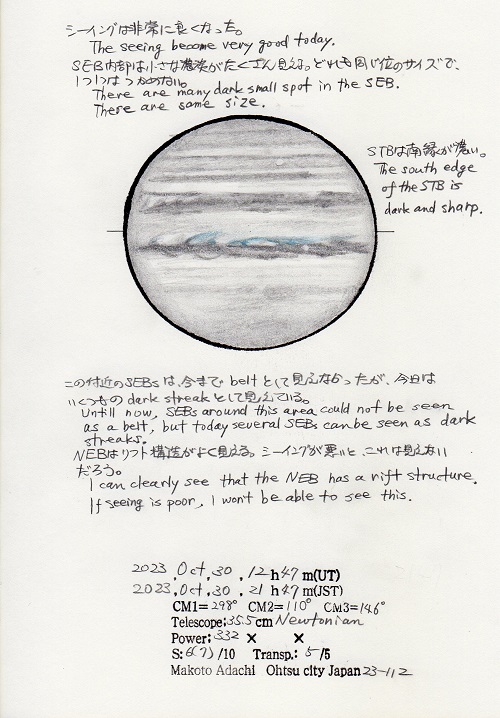 シーイングは非常に良くなった。
The seeing become very good today.
SEB内部は小さな暗斑がたくさん見える。どれも同じ位のサイズで、
1つ1つはつかめない。
There are many dark small spot in the SEB.
These are same size.
STBは南縁が濃い。
The south edge
of the STB is
dark and sharp.
この付近のSEBsは、今までbeltとして見えなかったが、今日は
いくつものdark streakとして見えている。
Untill now, SEBs around this area could not be seen
as a belt, but today several SEBs can be seen as dark
streaks.
NEBはリフト構造がよく見える。シーイングが悪いと、これは見えない
だろう。
I can clearly see that the NEB has a rift structure.
If seeing is poor, I won't be able to see this.
2023,Oct,30,12h47m(UT)
2023,Oct,30,21h47m(JST)
CM1=298° CM2=110° CM3=146°
Telescope;35.5cm Newtonian
Power;332× ×
S:6(7)/10 Transp.:5/5
Makoto Adachi Ohtsu city Japan 23-112